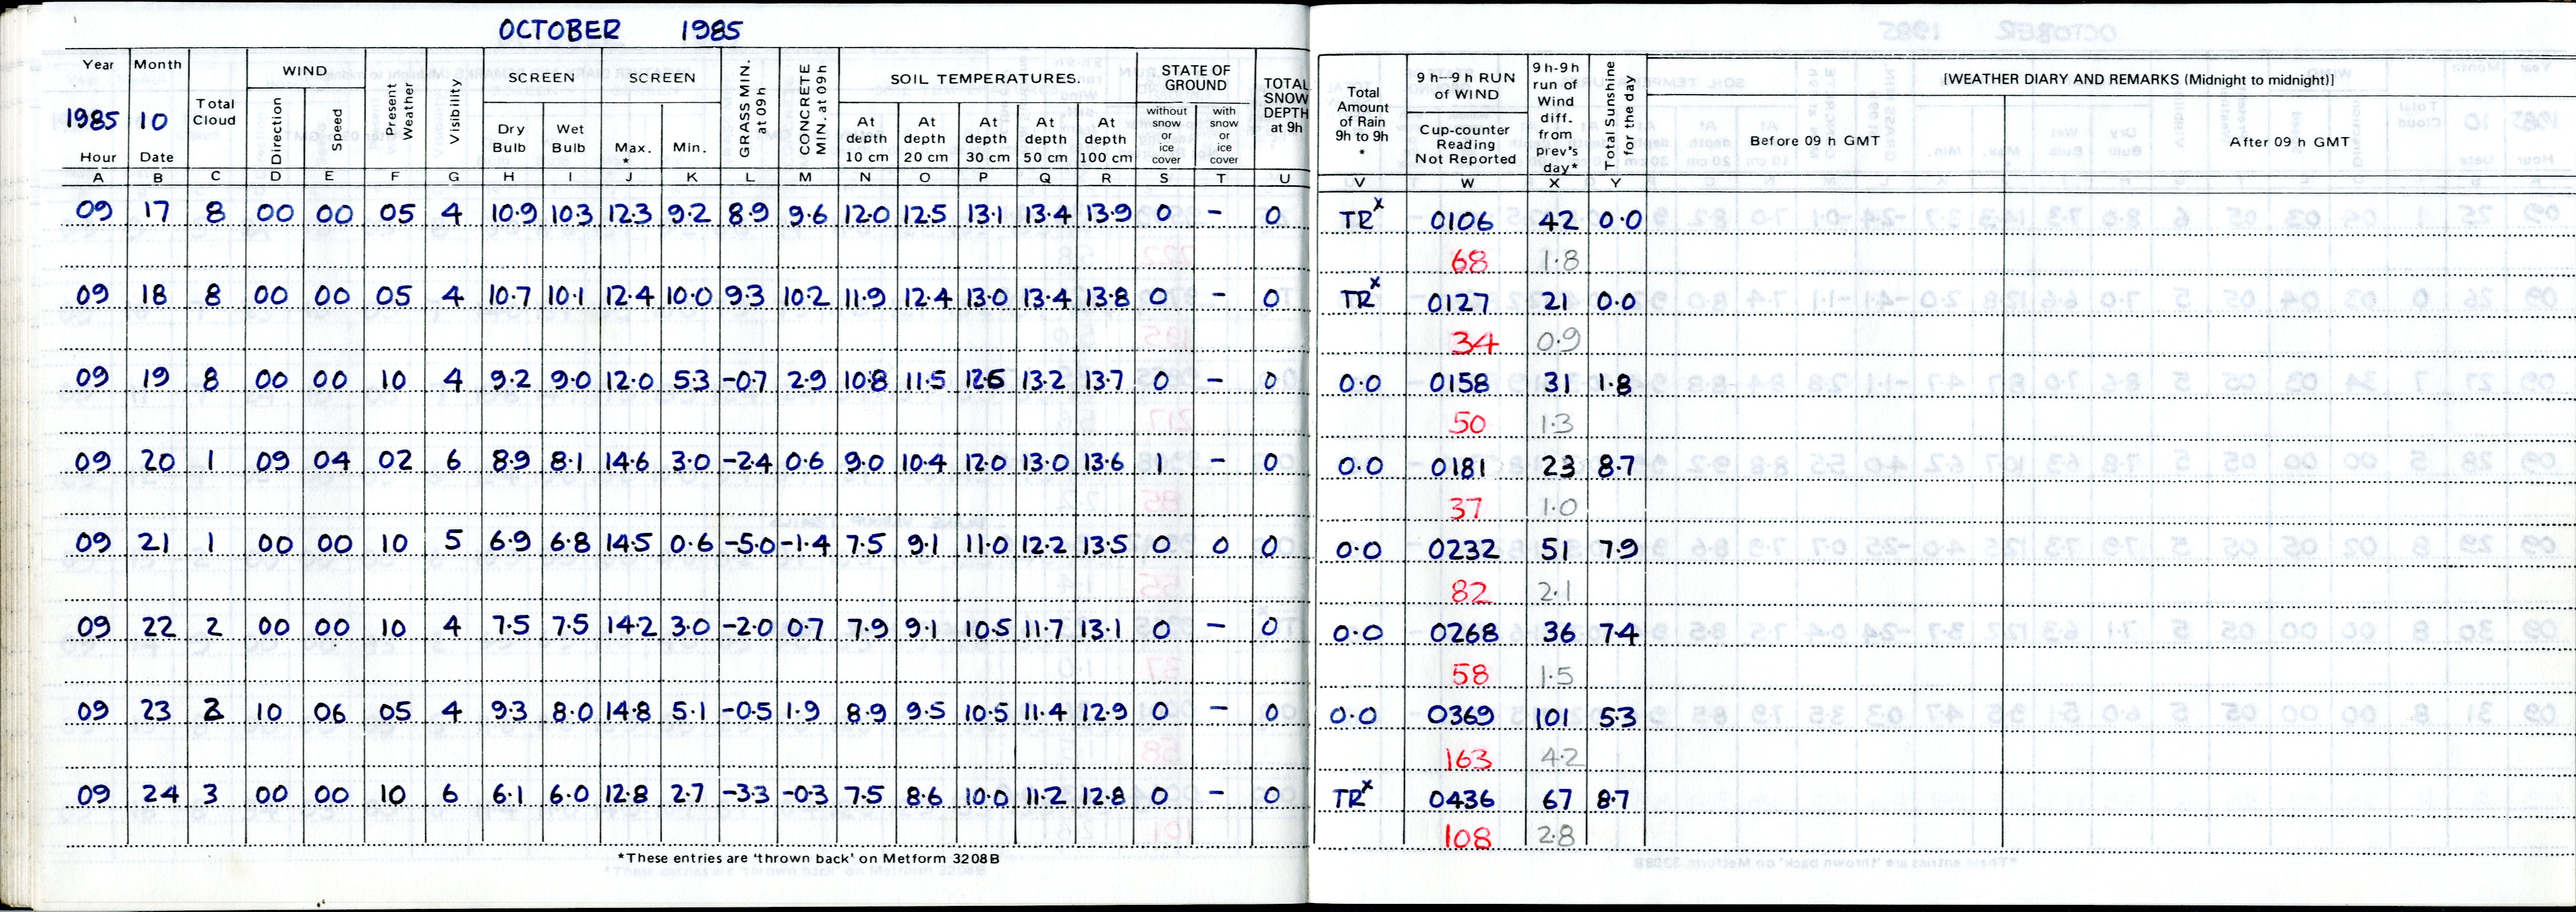 OCTOBER 1985
Year Month Total Cloud WIND Present Weather Visibility SCREEN SCREEN GRASS MIN. at 09h CONCRETE MIN. at 09h SOIL TEMPERATURES. STATE OF GROUND TOTAL SNOW DEPTH at 9h Total Amount of Rain 9h to 9h * 9 h--9 h RUN of WIND 9h-9h run of Wind diff. from prev's day* Total Sunshine for the day [WEATHER DIARY AND REMARKS (Midnight to midnight)]
1985 10 Direction Speed Dry Bulb Wet Bulb Max. * Min. At depth 10 cm At depth 20 cm At depth 30 cm At depth 50 cm At depth 100 cm without snow or ice cover with snow or ice cover Cup-counter Reading Not Reported Before 09 h GMT After 09 h GMT
Hour Date
A B C D E F G H I J K L M N O P Q R S T U V W X Y
09 17 8 00 00 05 4 10.9 10.3 12.3 9.2 8.9 9.6 12.0 12.5 13.1 13.4 13.9 0 - 0 TR x 0106 42 0.0
68 1.8
09 18 8 00 00 05 4 10.7 10.1 12.4 10.0 9.3 10.2 11.9 12.4 13.0 13.4 13.8 0 - 0 TR x 0127 21 0.0
34 0.9
09 19 8 00 00 10 4 9.2 9.0 12.0 5.3 -0.7 2.9 10.8 11.5 12.6 13.2 13.7 0 - 0 0.0 0158 31 1.8
50 1.3
09 20 1 09 04 02 6 8.9 8.1 14.6 3.0 -2.4 0.6 9.0 10.4 12.0 13.0 13.6 1 - 0 0.0 0181 23 8.7
37 1.0
09 21 1 00 00 10 5 6.9 6.8 14.5 0.6 -5.0 -1.4 7.5 9.1 11.0 12.2 13.5 0 0 0 0.0 0232 51 7.9
82 2.1
09 22 2 00 00 10 4 7.5 7.5 14.2 3.0 -2.0 0.7 7.9 9.1 10.5 11.7 13.1 0 - 0 0.0 0268 36 7.4
58 1.5
09 23 2 10 06 05 4 9.3 8.0 14.8 5.1 -0.5 1.9 8.9 9.5 10.5 11.4 12.9 0 - 0 0.0 0369 101 5.3
163 4.2
09 24 3 00 00 10 6 6.1 6.0 12.8 2.7 -3.3 -0.3 7.5 8.6 10.0 11.2 12.8 0 - 0 TR x 0436 67 8.7
108 2.8
*These entries are 'thrown back' on Metform 3208B